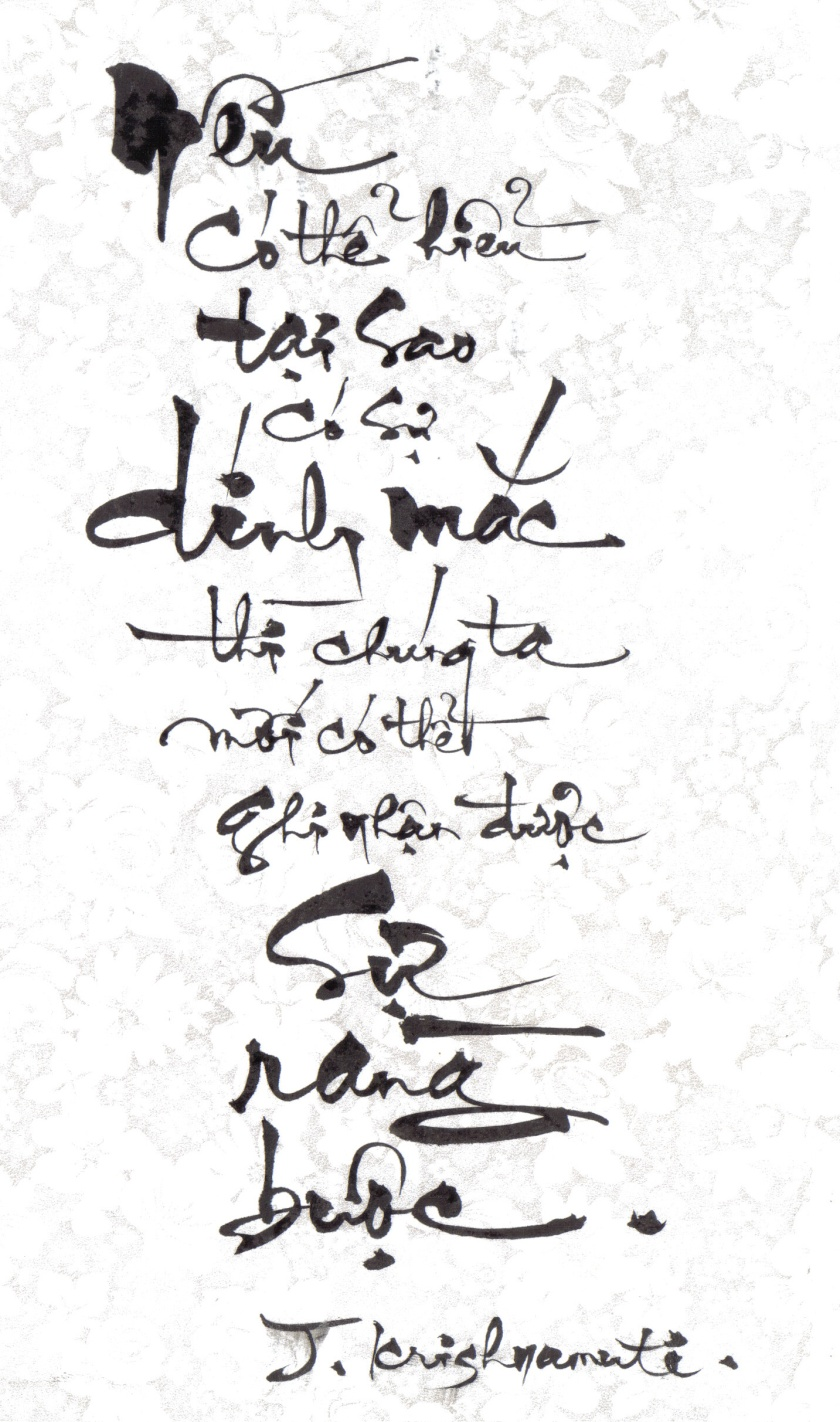 Nếu
có thể hiểu
tại sao
có sự
dính mắc
thì chúng ta
mới có thể
ghi nhận được
Sự
ràng
buộc.
J. Krishnamurti.